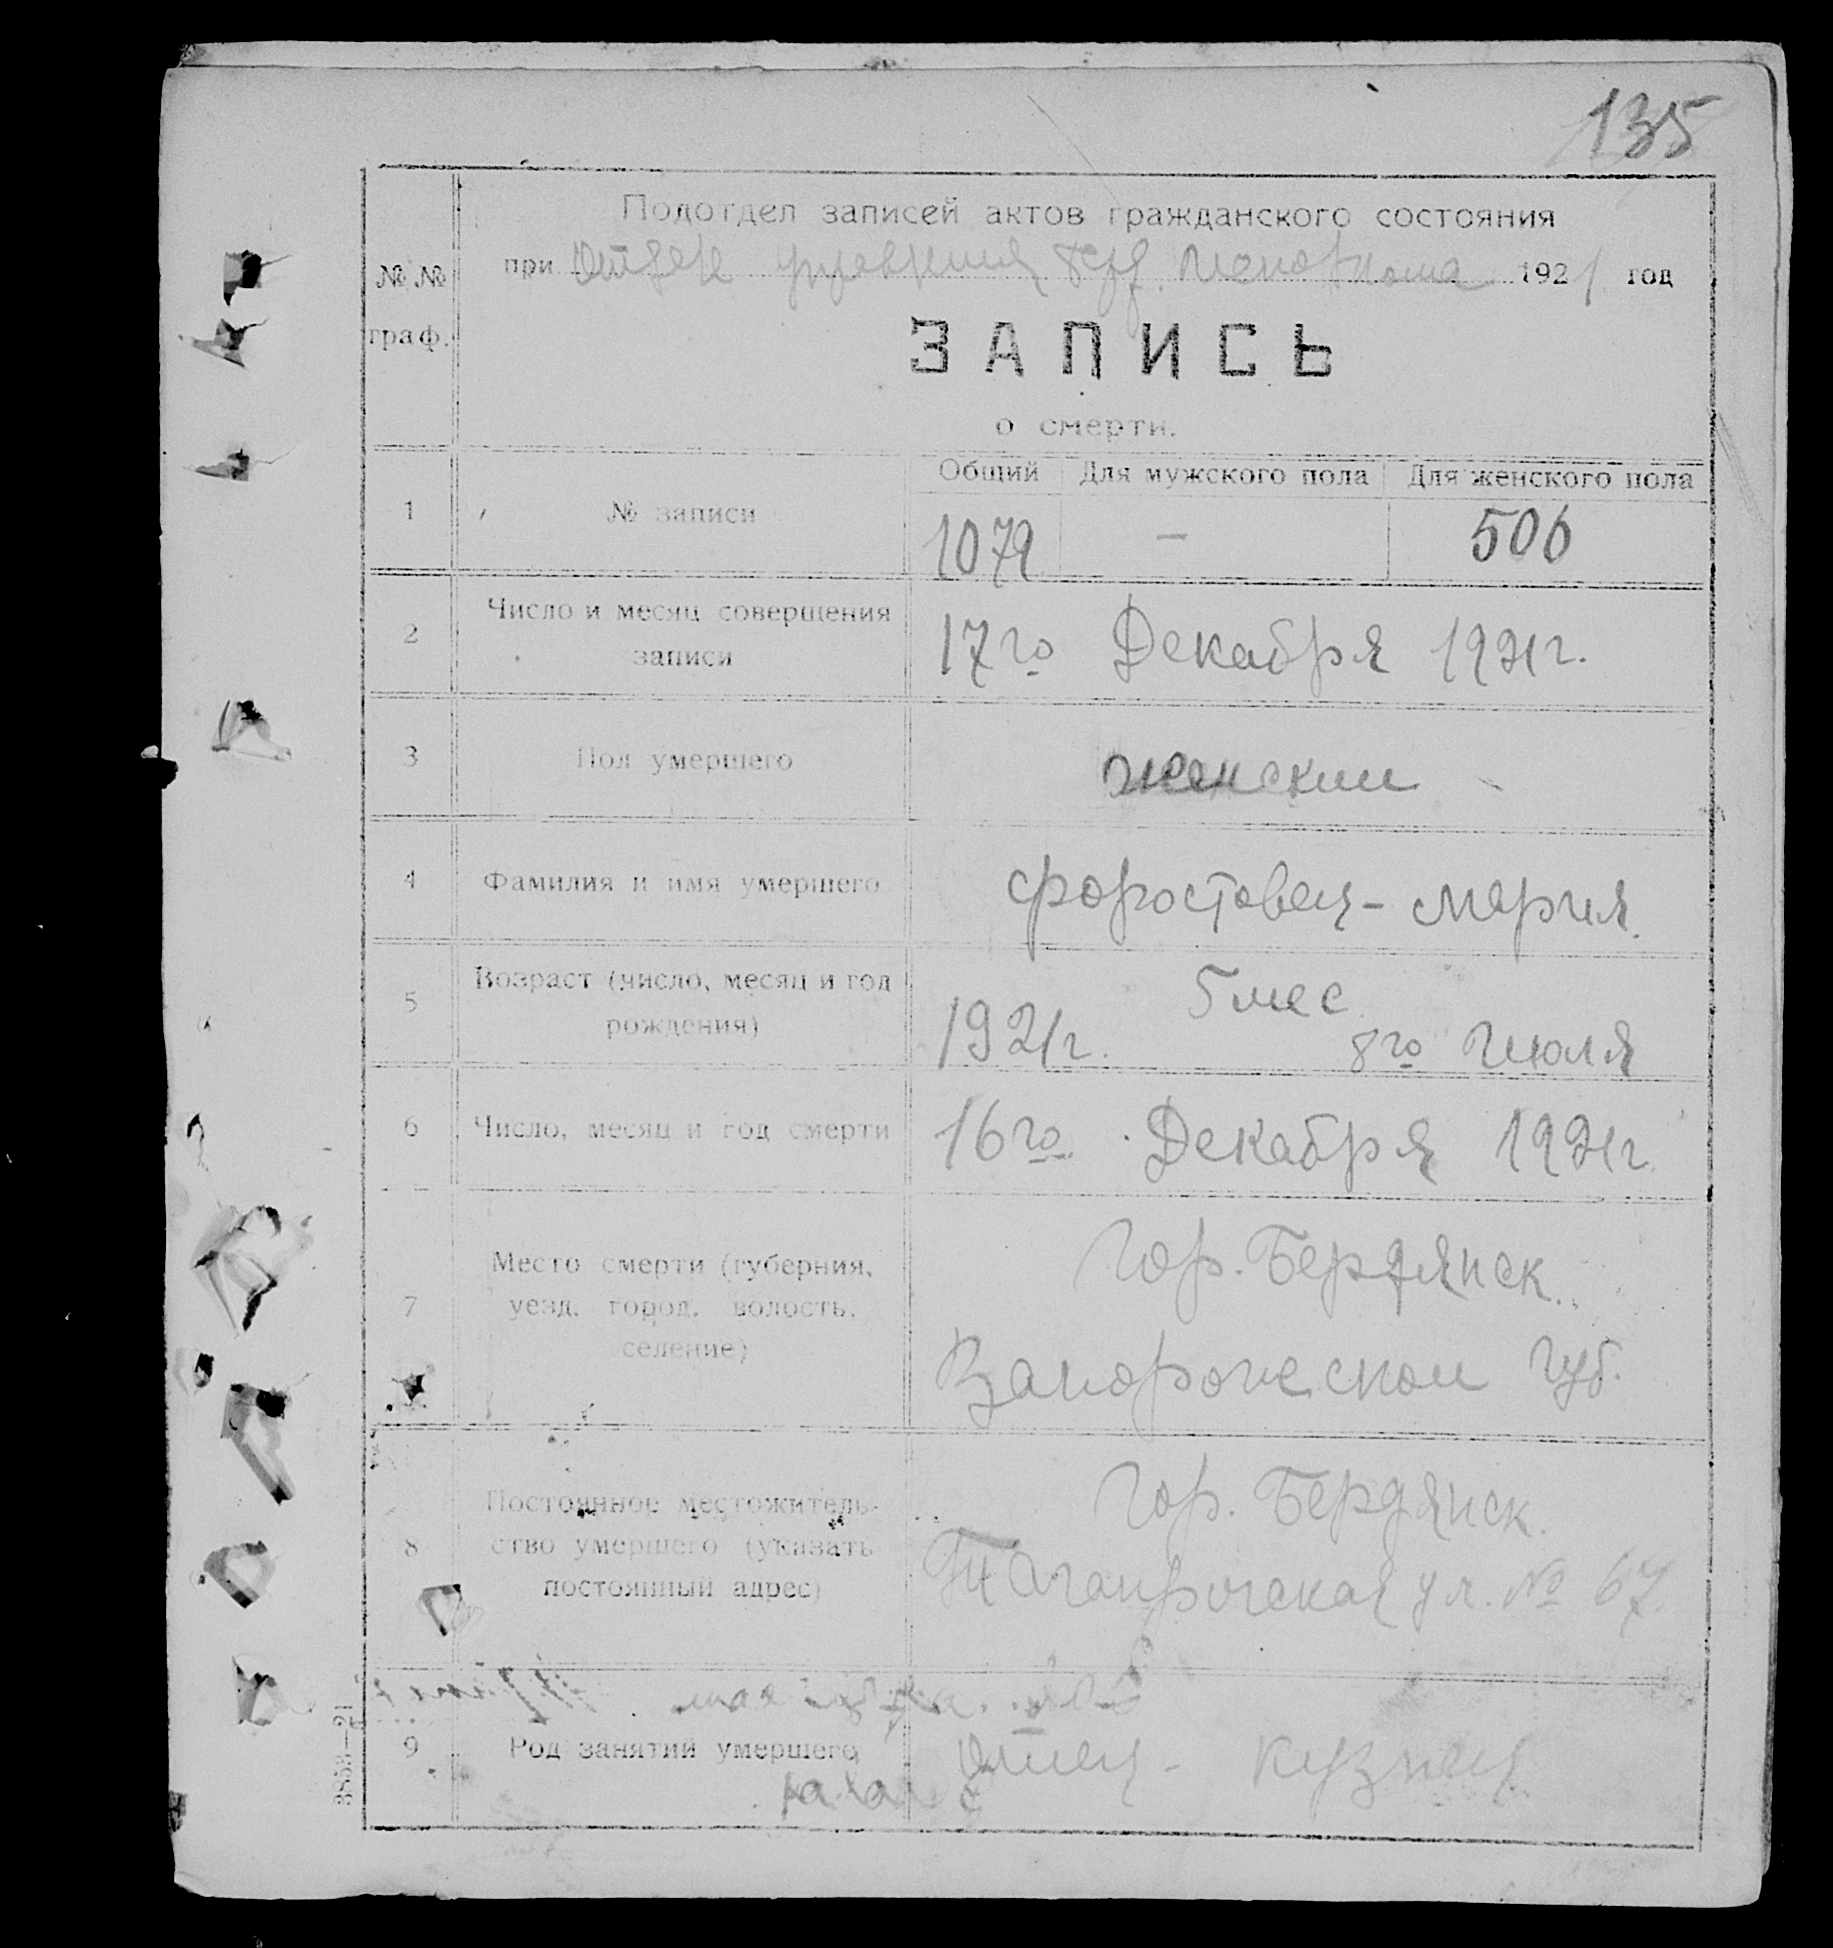 135
Подотдел записей актов гражданского состояния
№№ граф.
при Отделе Управления Бер. Исполкома 1921 год
ЗАПИСЬ
о смерти.
Общий Для мужского пола Для женского пола
1 № записи 1079 – 506
2 Число и месяц совершения записи 17го Декабря 1921г.
3 Пол умершего женский
4 Фамилия и имя умершего Форостовец - Мария.
5 Возраст (число, месяц и год рождения) 5 мес
1921г. 8го Июля
6 Число, месяц и год смерти 16го Декабря 1921г.
7 Место смерти (губерния, уезд, город, волость, селение)
Гор. Бердянск.
Запорожской Губ.
8 Постоянное местожительство умершего (указать постоянный адрес)
Гор. Бердянск.
Таганрогская ул. № 67.
9 Род занятий умершего Отец - Кузнец
3853—21